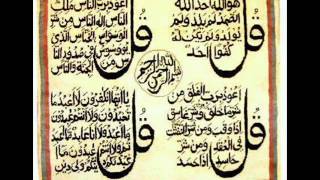 قل
هو الله احد الله
الصمد لم يلد ولم
يولد ولم يكن له
كفوا احد
قل
اعوذ برب الناس ملك
الناس اله الناس من شر
الوسواس الخناس الذي
يوسوس في صدور الناس
من الجنة والناس
بسم الله الرحمن الرحيم
قل
اعوذ برب الفلق من
شر ما خلق ومن شر غاسق
اذا وقب ومن شر النفثت
في العقد ومن شر
حاسد اذا حسد
قل
يا ايها الكفرون لا اعبد ما
تعبدون ولا انتم عبدون ما
اعبد ولا انا عابد ما عبدتم
ولا انتم عبدون ما اعبد
لكم دينكم ولي دين